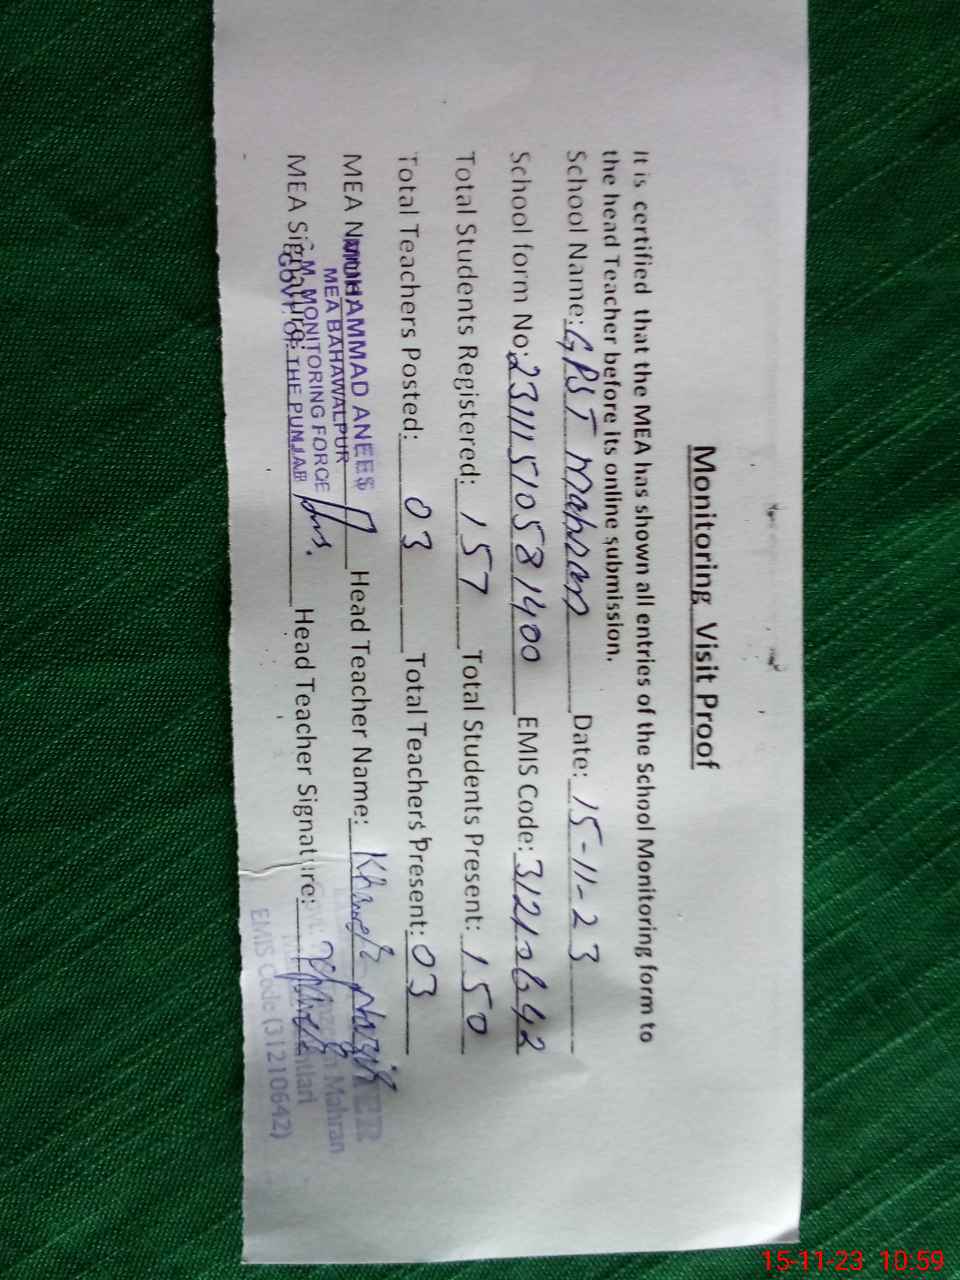 Monitoring Visit Proof
It is certified that the MEA has shown all entries of the School Monitoring form to
the head Teacher before its online submission.
School Name: GPST Mahran Date: 15-11-23
School form No: 231111510581400 EMIS Code: 31210642
Total Students Registered: 157 Total Students Present: 150
Total Teachers Posted: 03 Total Teachers Present: 03
MEA Name: Head Teacher Name:
MUHAMMAD ANEES
MEA BAHAWALPUR
C.M. MONITORING FORCE
GOVT. OF THE PUNJAB
MEA Signature: Head Teacher Signature:
Mahran
EMIS Code (31210642)
15-11-23 10:59